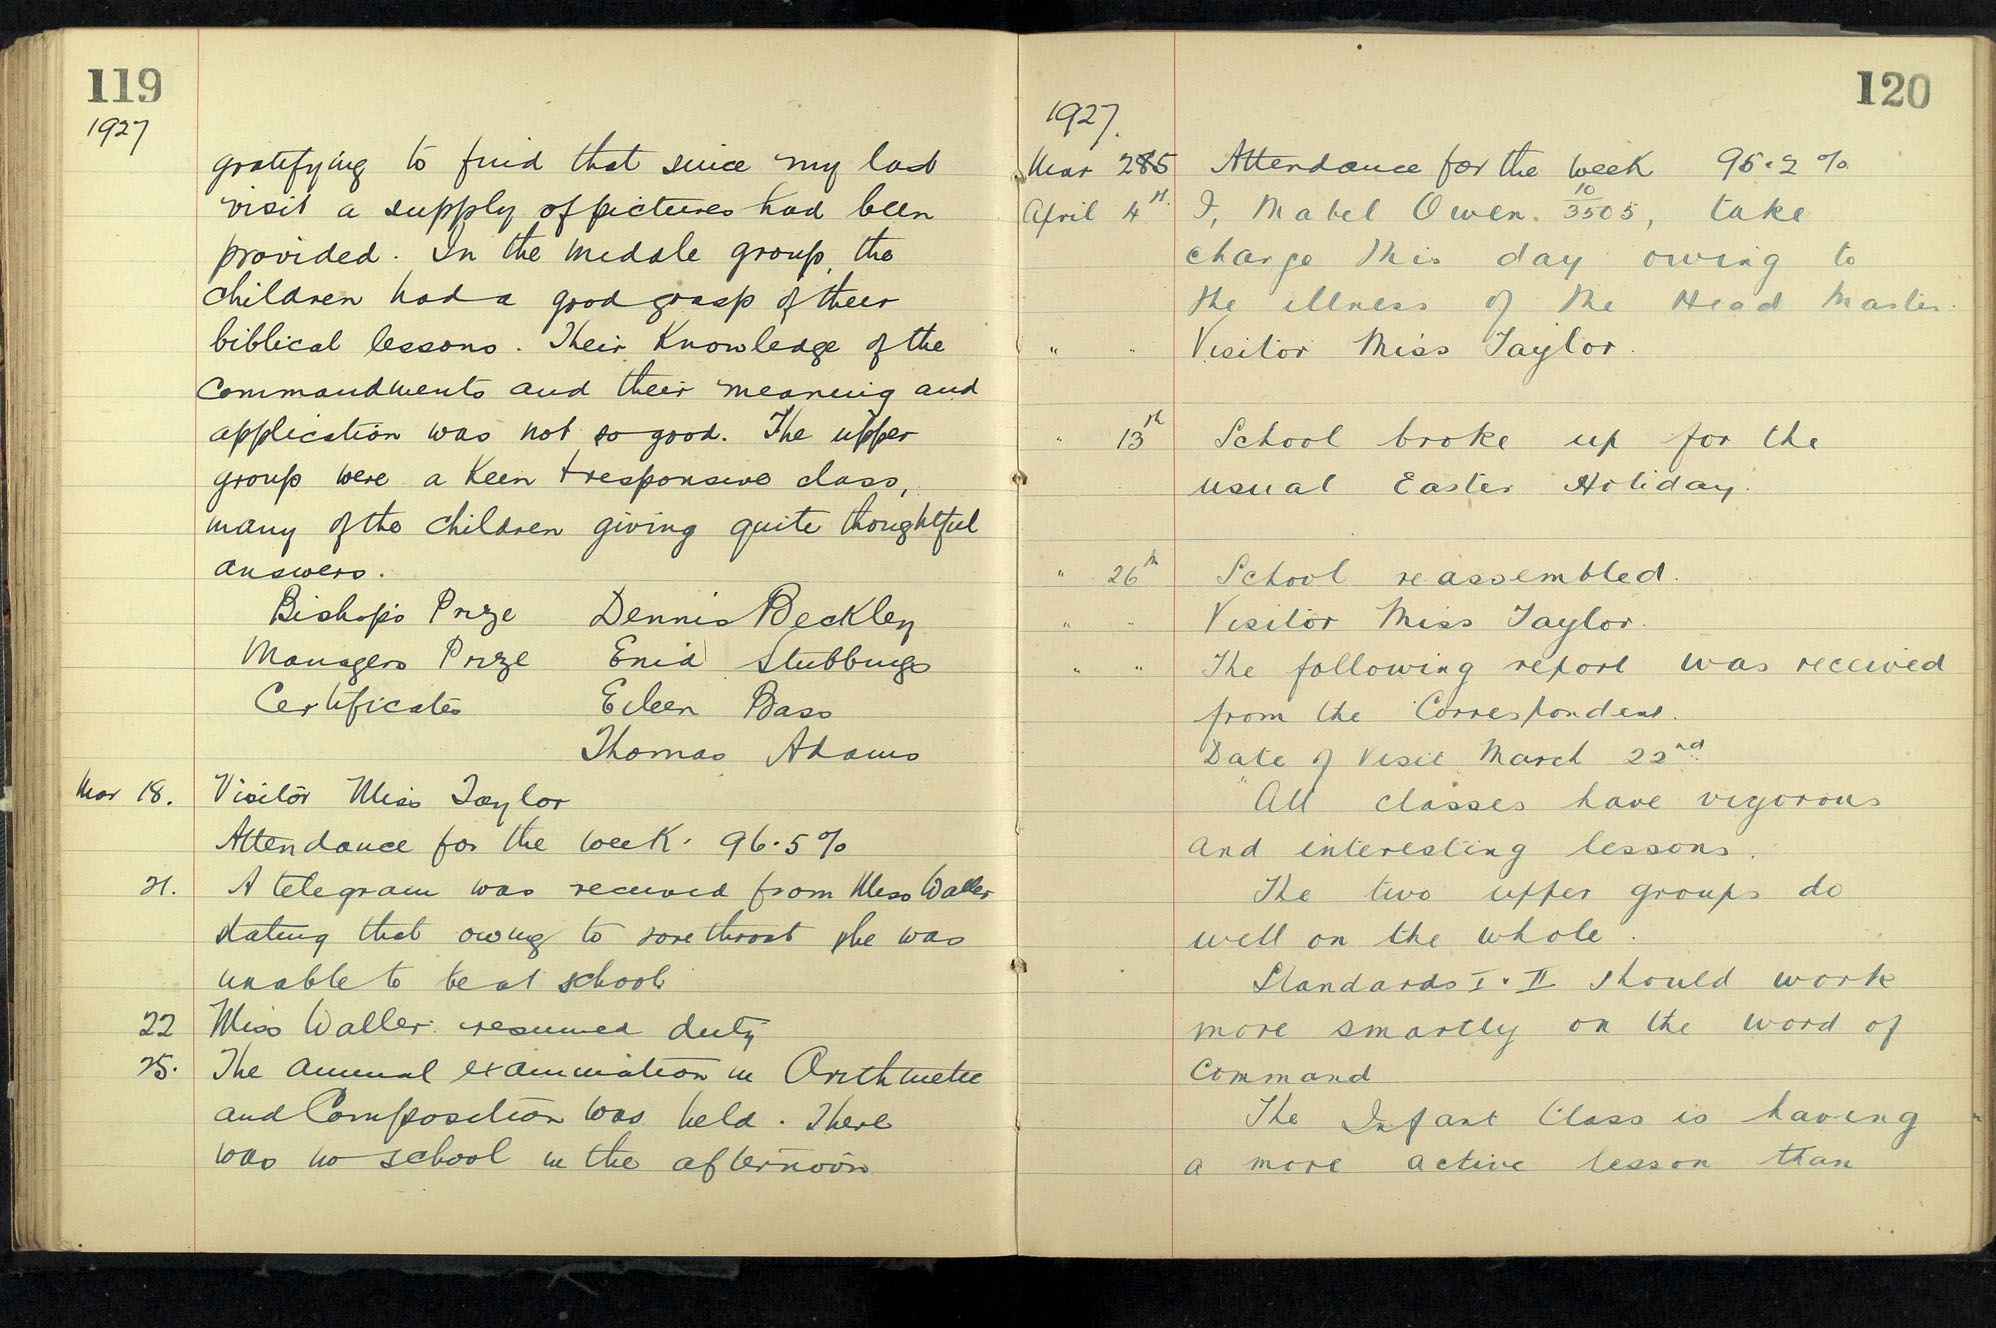 119
1927
gratifying to find that since my last
visit a supply of pictures had been
provided. In the middle group, the
children had a good grasp of their
biblical lessons. Their Knowledge of the
commandments and their meaning and
application was not so good. The upper
group were a keen + responsive class,
many of the children giving quite thoughtful
answers.
Bishop's Prize Dennis Beckley
Managers Prize Enid Stubbings
Certificates Eileen Bass
Thomas Adams
Mar 18. Visitor Miss Taylor
Attendance for the week. 96.5%
21. A telegram was received from Miss Waller
stating that owing to sore throat she was
unable to be at school
22 Miss Waller resumed duty
25. The annual examination in Arithmetic
and Composition was held. There
was no school in the afternoon
120
1927.
Mar 25 Attendance for the week 95.2%
April 4th I, Mabel Owen 10/3505, take
charge this day owing to
the illness of the Head Master.
" " Visitor Miss Taylor.
" 13th School broke up for the
usual Easter Holiday.
" 26th School reassembled.
" " Visitor Miss Taylor.
" " The following report was received
from the Correspondent.
Date of Visit March 22nd
"All classes have vigorous
and interesting lessons.
The two upper groups do
well on the whole.
Standards I. II should work
more smartly on the word of
command
The Infant Class is having
a more active lesson than